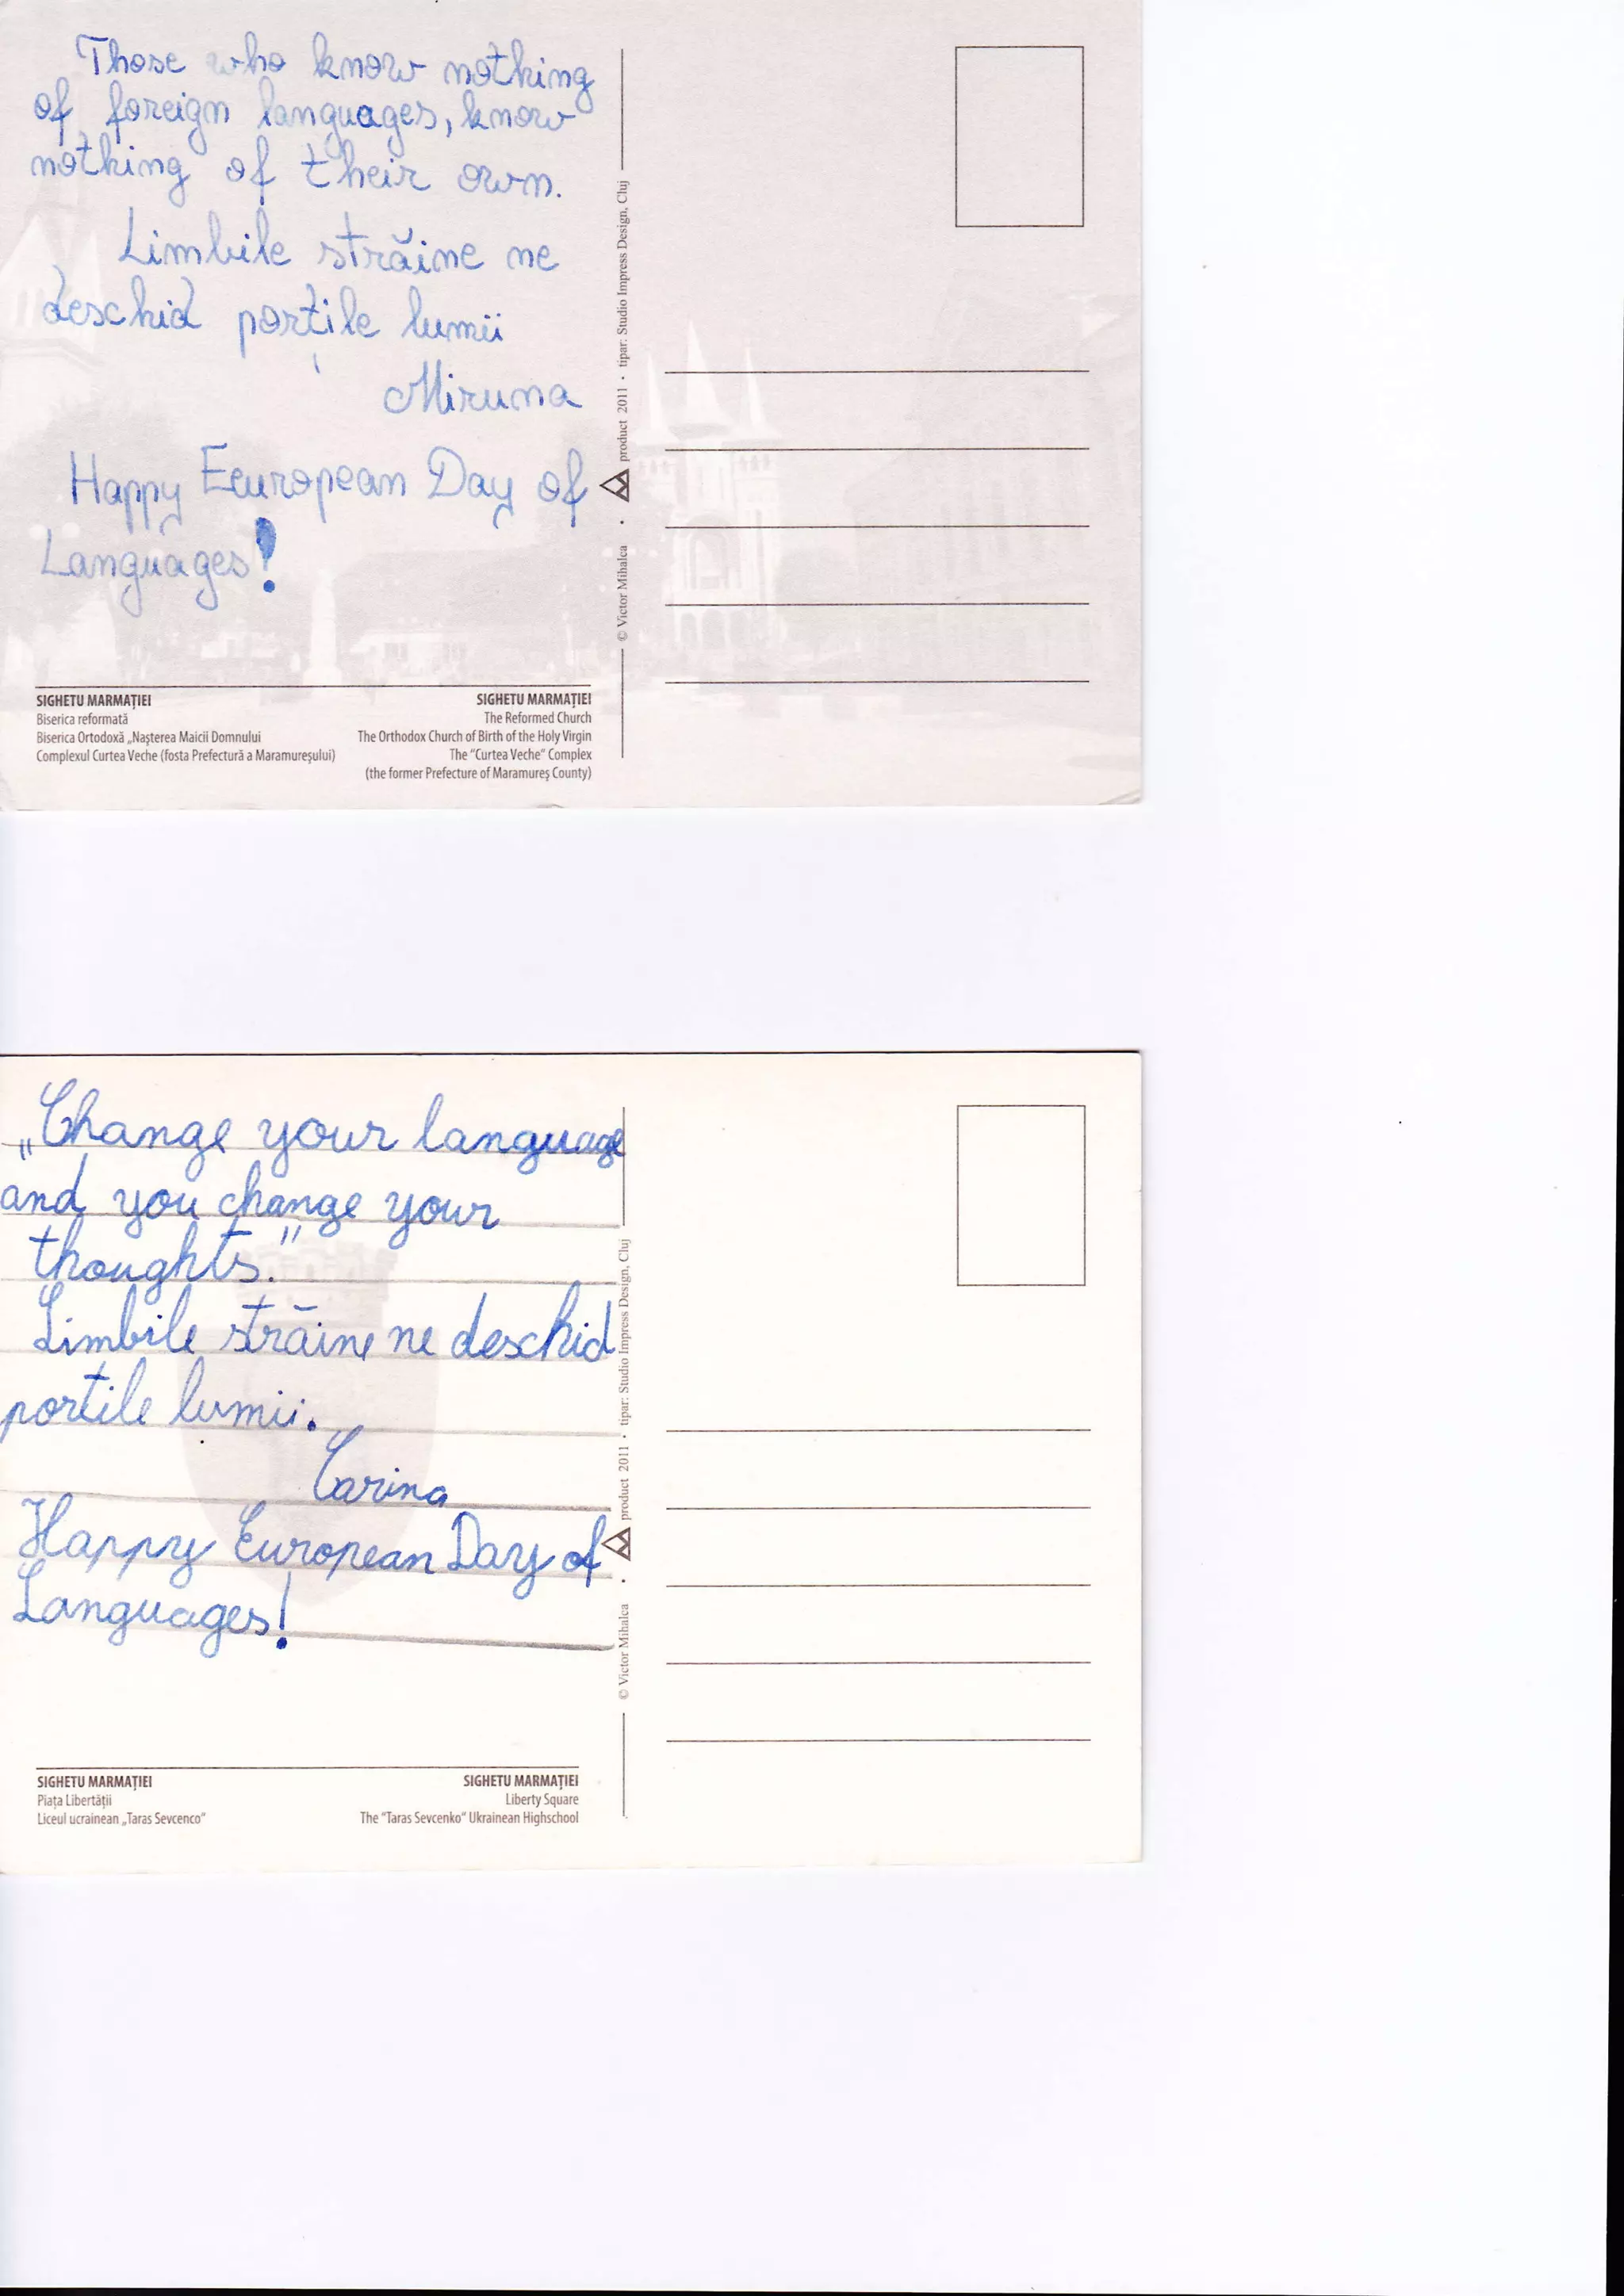 Those who know nothing
of foreign languages, know
nothing of their own.
Limbile străine ne
deschid porțile lumii
Miruna
Happy Eeuropean Day of
Languages!
SIGHETU MARMAŢIEI
Biserica reformată
Biserica Ortodoxă „Naşterea Maicii Domnului
Complexul Curtea Veche (fosta Prefectură a Maramureşului)
SIGHETU MARMAŢIEI
The Reformed Church
The Orthodox Church of Birth of the Holy Virgin
The "Curtea Veche" Complex
(the former Prefecture of Maramureş County)
© Victor Mihalca • product 2011 • tipar: Studio Impress Design, Cluj
„Change your language
and you change your
thoughts."
Limbile străine ne deschid
portile lumii.
Carina
Happy European Day of
Languages!
SIGHETU MARMAŢIEI
Piaţa Libertăţii
Liceul ucrainean „Taras Sevcenco"
SIGHETU MARMAŢIEI
Liberty Square
The "Taras Sevcenko" Ukrainean Highschool
© Victor Mihalca • product 2011 • tipar: Studio Impress Design, Cluj